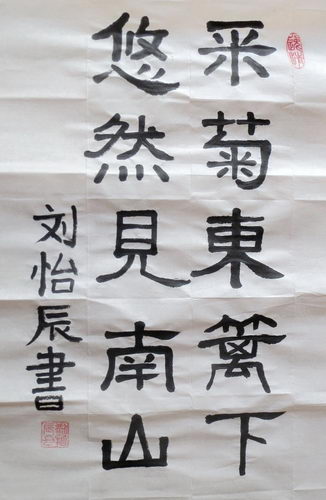 采菊東篱下
悠然見南山
刘怡辰書